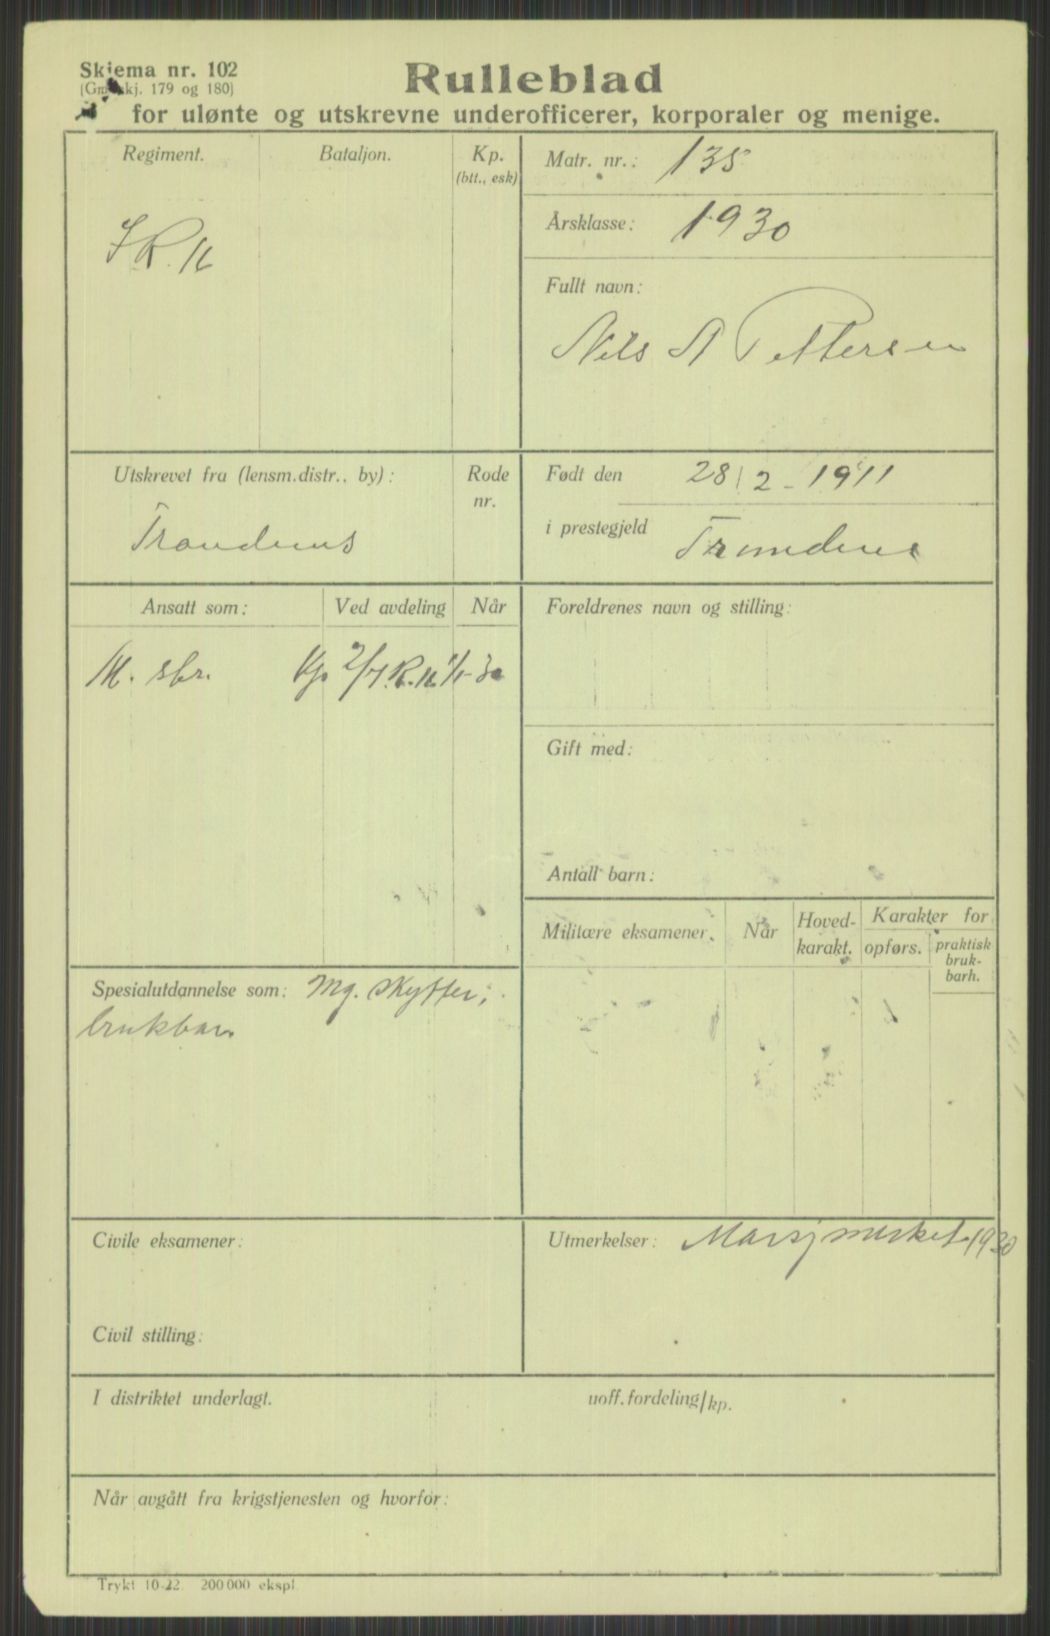 Skjema nr. 102
(Gr. skj. 179 og 180)
Rulleblad
for ulønte og utskrevne underofficerer, korporaler og menige.
Regiment. Bataljon. Kp.
(btt., esk)
I R. 16
Matr. nr.: 135
Årsklasse: 1930
Fullt navn:
Nils A Pettersen
Utskrevet fra (lensm.distr., by): Rode
nr.
Trondenes
Født den 28/2 - 1911
i prestegjeld Trondenes
Ansatt som: Ved avdeling Når
M. sbr. Kp 2/I.R.16 1/1-30
Foreldrenes navn og stilling:
Gift med:
Antall barn:
Militære eksamener. Når Hoved-
karakt. Karakter for
opførs. praktisk
bruk-
barh.
Spesialutdannelse som: Mg. skytter,
brukbar.
Civile eksamener:
Civil stilling:
Utmerkelser: Marsjmerket 1930
I distriktet underlagt. uoff. fordeling/kp.
Når avgått fra krigstjenesten og hvorfor:
Trykt 10-22. 200 000 ekspl.